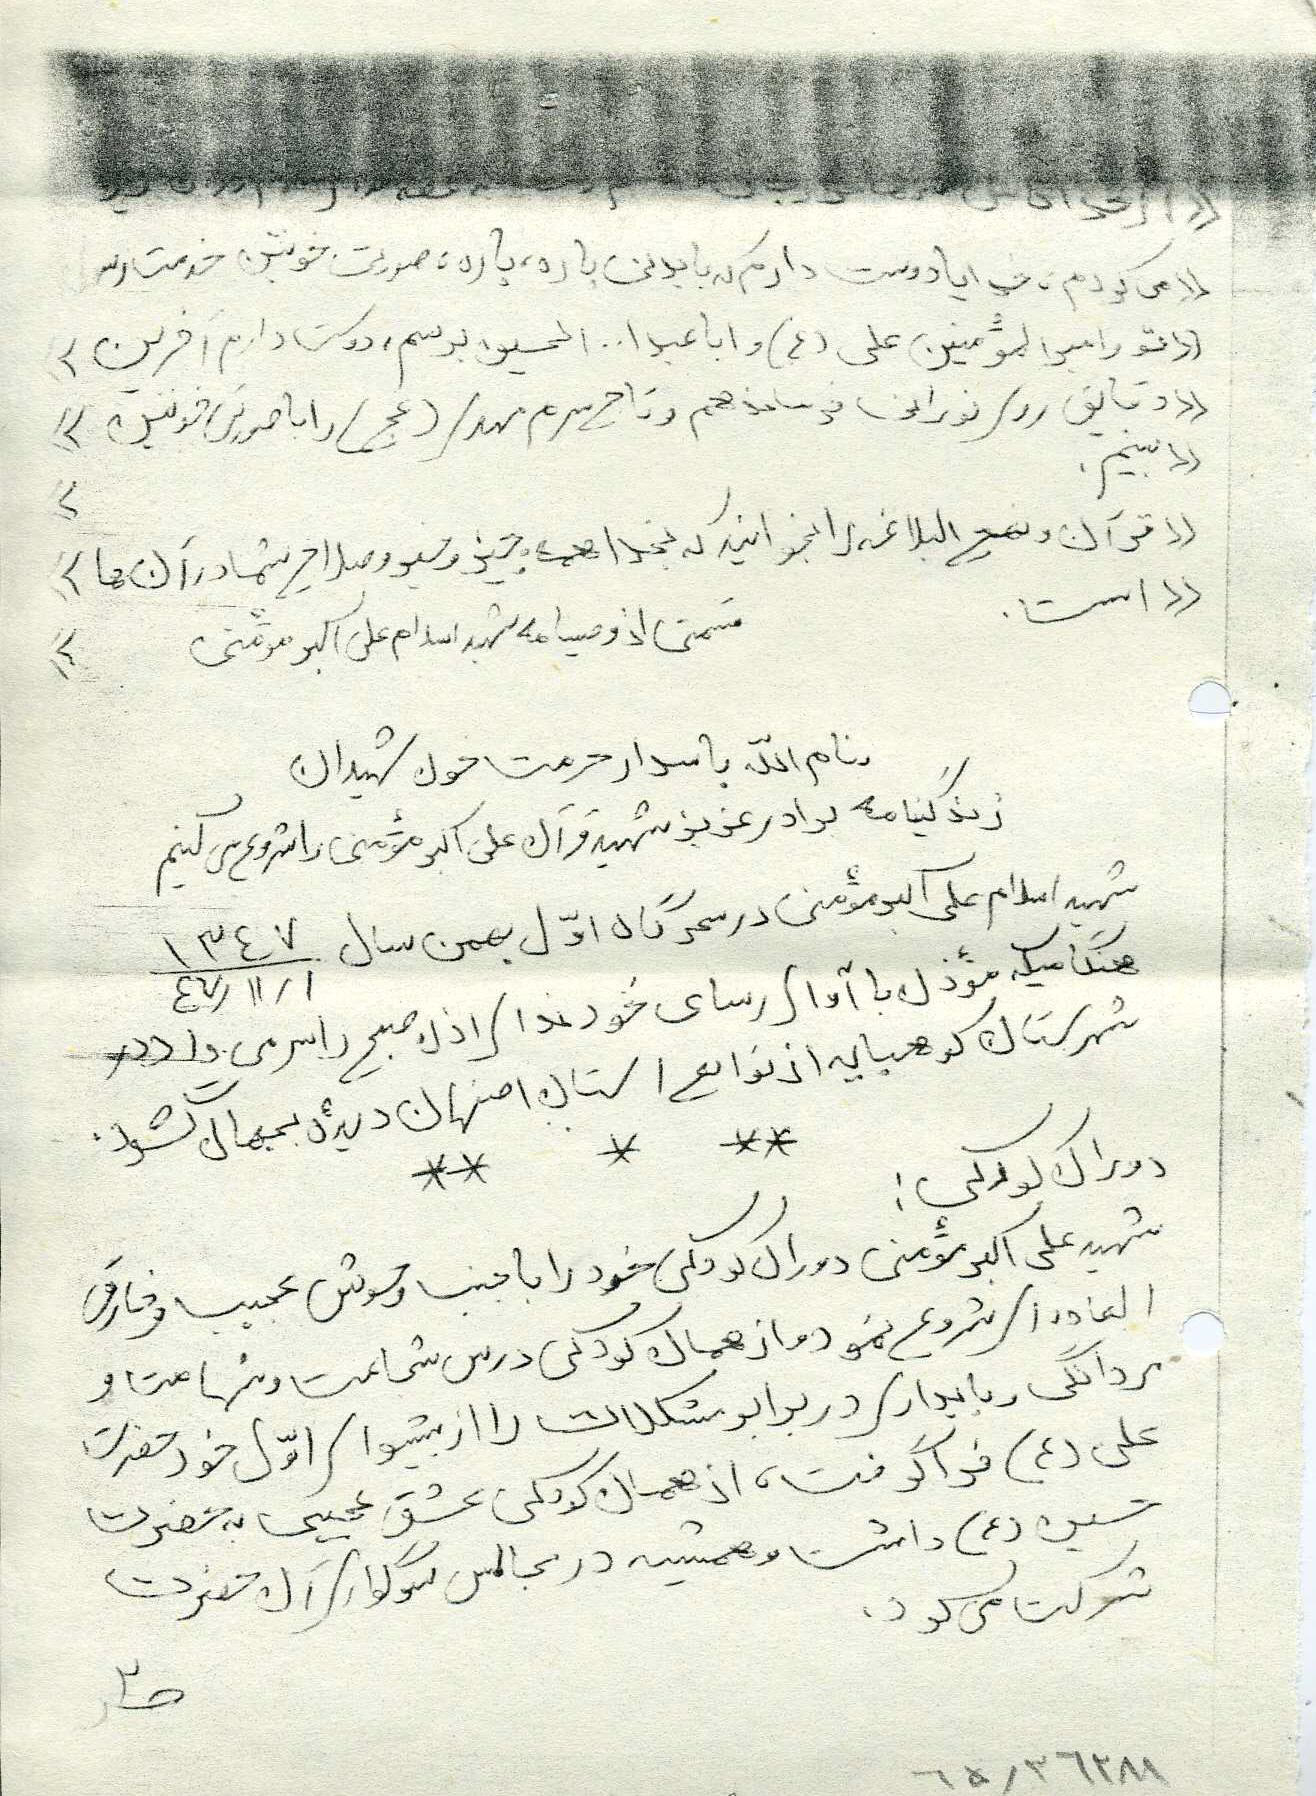 ((می کردم، خدایا دوست دارم که با بدنی پاره، پاره، صورتی خونین خدمت
((تو و امیرالمؤمنین علی (ع) و اباعبدا.. الحسین برسم، دوست دارم آخرین ))
((دقایق روی نورانی فرمانده هم و تاج سرم مهدی (عج) را با صورتی خونین ))
((ببینم.
))
((قرآن و نهج البلاغه را بخوانید که بخدا همه چیز و خیر و صلاح شما در آن ها ))
((است.
قسمتی از وصیتنامه شهید اسلام علی اکبر مؤمنی
))
بنام الله پاسدار حرمت خون شهیدان
زندگینامه برادر عزیز شهید قرآن علی اکبر مؤمنی را شروع می کنیم
شهید اسلام علی اکبر مؤمنی در سحرگاه اوّل بهمن سال ١٣٤٧
٤٧/١١/١
هنگامیکه مؤذن با آوای رسای خود ندای اذان صبح را سر می داد در
شهرستان کوهپایه از توابع استان اصفهان دیده بجهان گشود.
** * **
دوران کودکی:
شهید علی اکبر مؤمنی دوران کودکی خود را با جنب و جوش عجیب و خارق
العاده ای شروع نمود و از همان کودکی درس شجاعت و شهامت و
مردانگی و پایداری در برابر مشکلات را از پیشوای اوّل خود حضرت
علی (ع) فرا گرفت، از همان کودکی عشق عجیبی به حضرت
حسین (ع) داشت و همیشه در مجالس سوگواری آن حضرت
شرکت می کرد.
ص٣
٦٥/٣٦٢٨٨